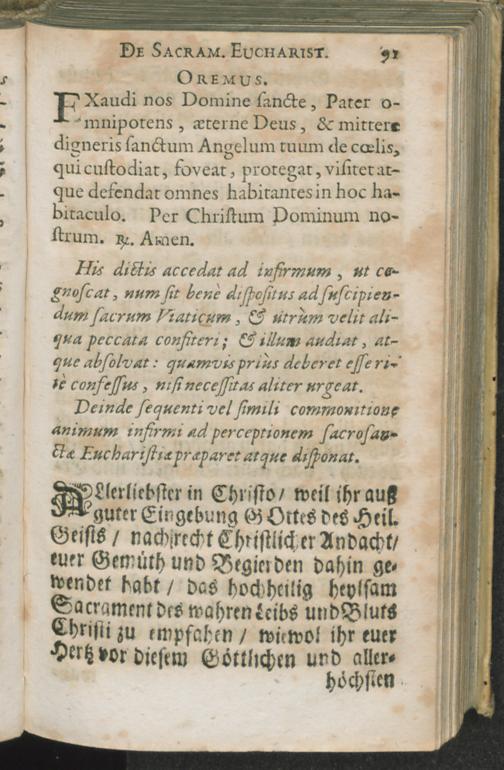 DE SACRAM. EUCHARIST. 91
OREMUS.
EXaudi nos Domine ſancte, Pater o-
mnipotens, æterne Deus, & mittere
digneris ſanctum Angelum tuum de cœlis,
qui cuſtodiat, foveat, protegat, viſitet at-
que defendat omnes habitantes in hoc ha-
bitaculo. Per Chriſtum Dominum no-
ſtrum. ℟. Amen.
His dictis accedat ad infirmum, ut co-
gnoſcat, num ſit benè diſpoſitus ad ſuſcipien-
dum ſacrum Viaticum, & utrùm velit ali-
qua peccata confiteri; & illum audiat, at-
que abſolvat: quamvis priùs deberet eſſe ri-
tè confeſſus, niſi neceſſitas aliter urgeat.
Deinde ſequenti vel ſimili commonitione
animum infirmi ad perceptionem ſacroſan-
ctæ Euchariſtiæ præparet atque diſponat.
ALlerliebſter in Chriſto / weil ihr auß
guter Eingebung GOttes des Heil.
Geiſts / nach recht Chriſtlicher Andacht /
euer Gemüth und Begierden dahin ge-
wendet habt / das hochheilig heylſam
Sacrament des wahren Leibs und Bluts
Chriſti zu empfahen / wiewol ihr euer
Hertz vor dieſem Göttlichen und aller-
höchſten